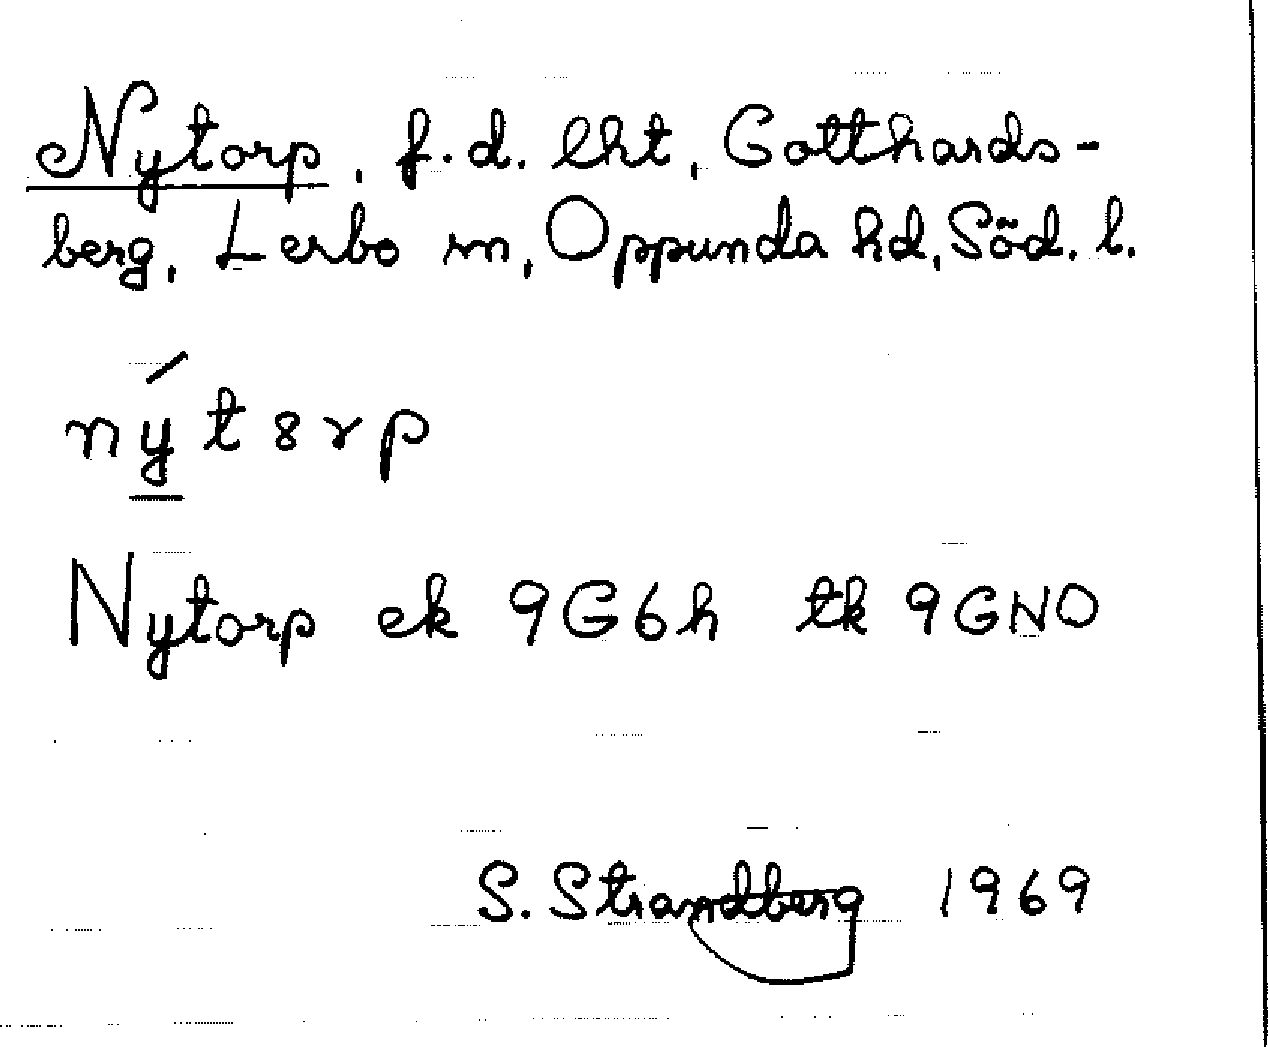 Nytorp, f.d. lht, Gotthards-
berg, Lerbo sn, Oppunda hd, Söd. l.
nýt8rp
Nytorp ek 9G6h tk 9GNO
S. Strandberg 1969